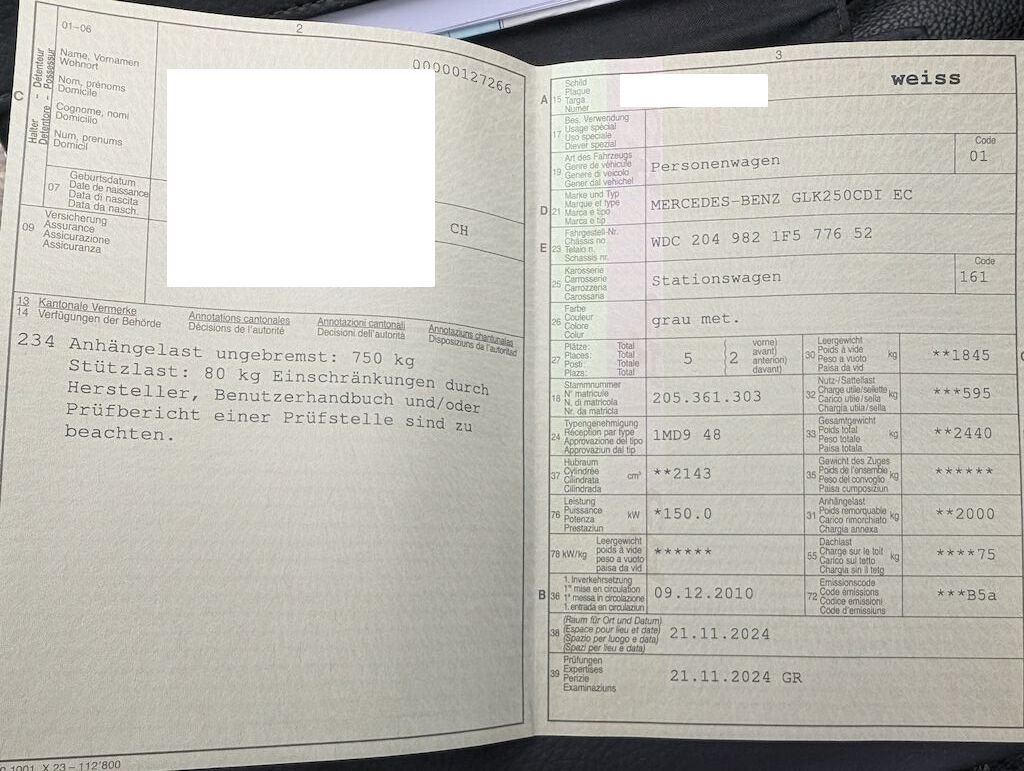 01–06
2
00000127266
C
Halter - Détenteur
Detentore - Possessur
Name, Vornamen
Wohnort
Nom, prénoms
Domicile
Cognome, nomi
Domicilio
Num, prenums
Domicil
07
Geburtsdatum
Date de naissance
Data di nascita
Data da nasch.
09
Versicherung
Assurance
Assicurazione
Assicuranza
CH
13 Kantonale Vermerke Annotations cantonales Annotazioni cantonali Annotaziuns chantunalas
14 Verfügungen der Behörde Décisions de l'autorité Decisioni dell'autorità Disposiziuns da l'autoritad
234 Anhängelast ungebremst: 750 kg
Stützlast: 80 kg Einschränkungen durch
Hersteller, Benutzerhandbuch und/oder
Prüfbericht einer Prüfstelle sind zu
beachten.
1001 X 23 – 112'800
3
A 15
Schild
Plaque
Targa
Numer
weiss
17
Bes. Verwendung
Usage spécial
Uso speciale
Diever spezial
19
Art des Fahrzeugs
Genre de véhicule
Genere di veicolo
Gener dal vehichel
Personenwagen
Code
01
D 21
Marke und Typ
Marque et type
Marca e tipo
Marca e tip
MERCEDES-BENZ GLK250CDI EC
E 23
Fahrgestell-Nr.
Châssis no
Telaio n.
Schassis nr.
WDC 204 982 1F5 776 52
25
Karosserie
Carrosserie
Carrozzeria
Carossaria
Stationswagen
Code
161
26
Farbe
Couleur
Colore
Colur
grau met.
27
Plätze: Total
Places: Total
Posti: Totale
Plazs: Total
5
2
vorne)
avant)
anteriori)
davant)
30
Leergewicht
Poids à vide
Peso a vuoto
Paisa da vid
kg
**1845
18
Stammnummer
N° matricule
N. di matricola
Nr. da matricla
205.361.303
32
Nutz-/Sattellast
Charge utile/sellette
Carico utile/sella
Chargia utila/sella
kg
***595
24
Typengenehmigung
Réception par type
Approvazione del tipo
Approvaziun dal tip
1MD9 48
33
Gesamtgewicht
Poids total
Peso totale
Paisa totala
kg
**2440
37
Hubraum
Cylindrée
Cilindrata
Cilindrada
cm³
**2143
35
Gewicht des Zuges
Poids de l'ensemble
Peso del convoglio
Paisa cumposiziun
kg
******
76
Leistung
Puissance
Potenza
Prestaziun
kW
*150.0
31
Anhängelast
Poids remorquable
Carico rimorchiato
Chargia annexa
kg
**2000
78 kW/kg
Leergewicht
poids à vide
peso a vuoto
paisa da vid
******
55
Dachlast
Charge sur le toit
Carico sul tetto
Chargia sin il tetg
kg
****75
B 36
1. Inverkehrsetzung
1re mise en circulation
1a messa in circolazione
1. entrada en circulaziun
09.12.2010
72
Emissionscode
Code émissions
Codice emissioni
Code d'emissiuns
***B5a
38
(Raum für Ort und Datum)
(Espace pour lieu et date)
(Spazio per luogo e data)
(Spazi per lieu e data)
21.11.2024
39
Prüfungen
Expertises
Perizie
Examinaziuns
21.11.2024 GR